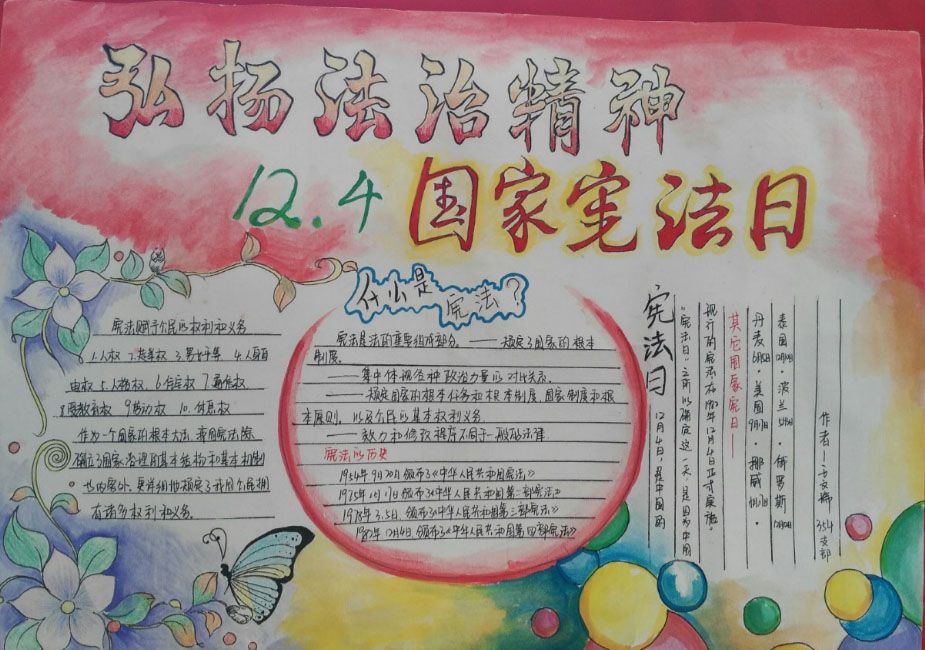 弘扬法治精神
12.4 国家宪法日
什么是宪法？
宪法赋予个民的权利和义务
1.人权 2.选举权 3.男女平等 4.人身自
由权 5.人格权 6.住宅权 7.通信权
8.受教育权 9.劳动权 10.休息权
作为一个国家的根本大法，我国宪法除
确立了国家治理的基本结构和基本机制
也的窗外，更详细地规定了我国个民拥
有诸多权利和义务。
宪法是法的重要组成部分。——规定了国家的根本
制度。
——集中体现各种政治力量的对比关系。
——规定国家的根本任务和根本制度，国家制度和根
本原则，以及个民的基本权利义务
——效力和修改程序不同于一般的法律
宪法的历史
1954年9月20日颁布了《中华人民共和国宪法》
1975年1月17日颁布了《中华人民共和国第二部宪法》
1978年3.5日，颁布了《中华人民共和国第三部宪法》
1982年12月4日，颁布了《中华人民共和国第四部宪法》
宪法日
12月4日，是中国的
“宪法日”之所以确定这一天，是因为中国
现行的宪法在1982年12月4日正式实施。
其它国家宪日——
丹麦6月5日·美国9月17日·挪威5月17日
泰国12月10日·波兰5月3日·俄罗斯12月12日
作者——
354支部